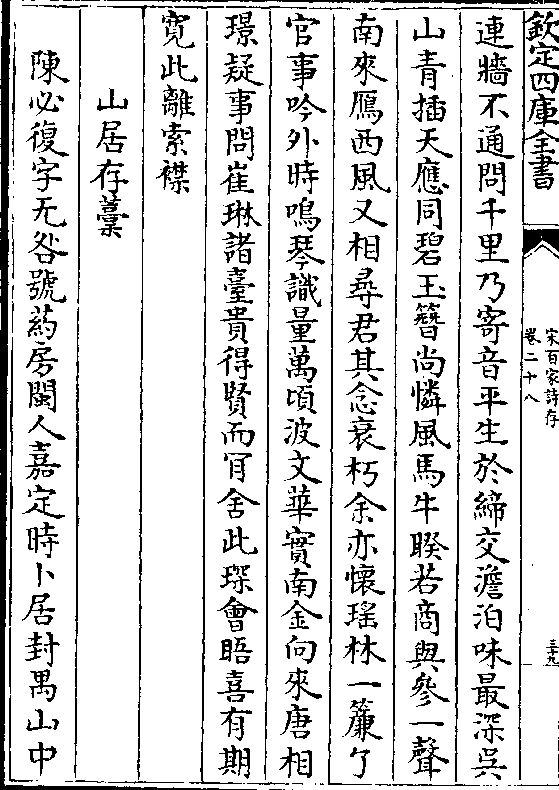 欽定四庫全書
宋百家詩存
卷二十八
三十九
連牆不通問千里乃寄音平生於締交澹泊味最深吳
山青插天應同碧玉簪尚憐風馬牛睽若商與參一聲
南來鴈西風又相尋君其念衰朽余亦懷瑤林一簾了
官事吟外時鳴琴識量萬頃波文華實南金向來唐相
璟疑事問崔琳諸臺貴得賢而肎舍此琛會晤喜有期
寬此離索襟
山居存藁
陳必復字无咎號葯房閩人嘉定時卜居封禺山中